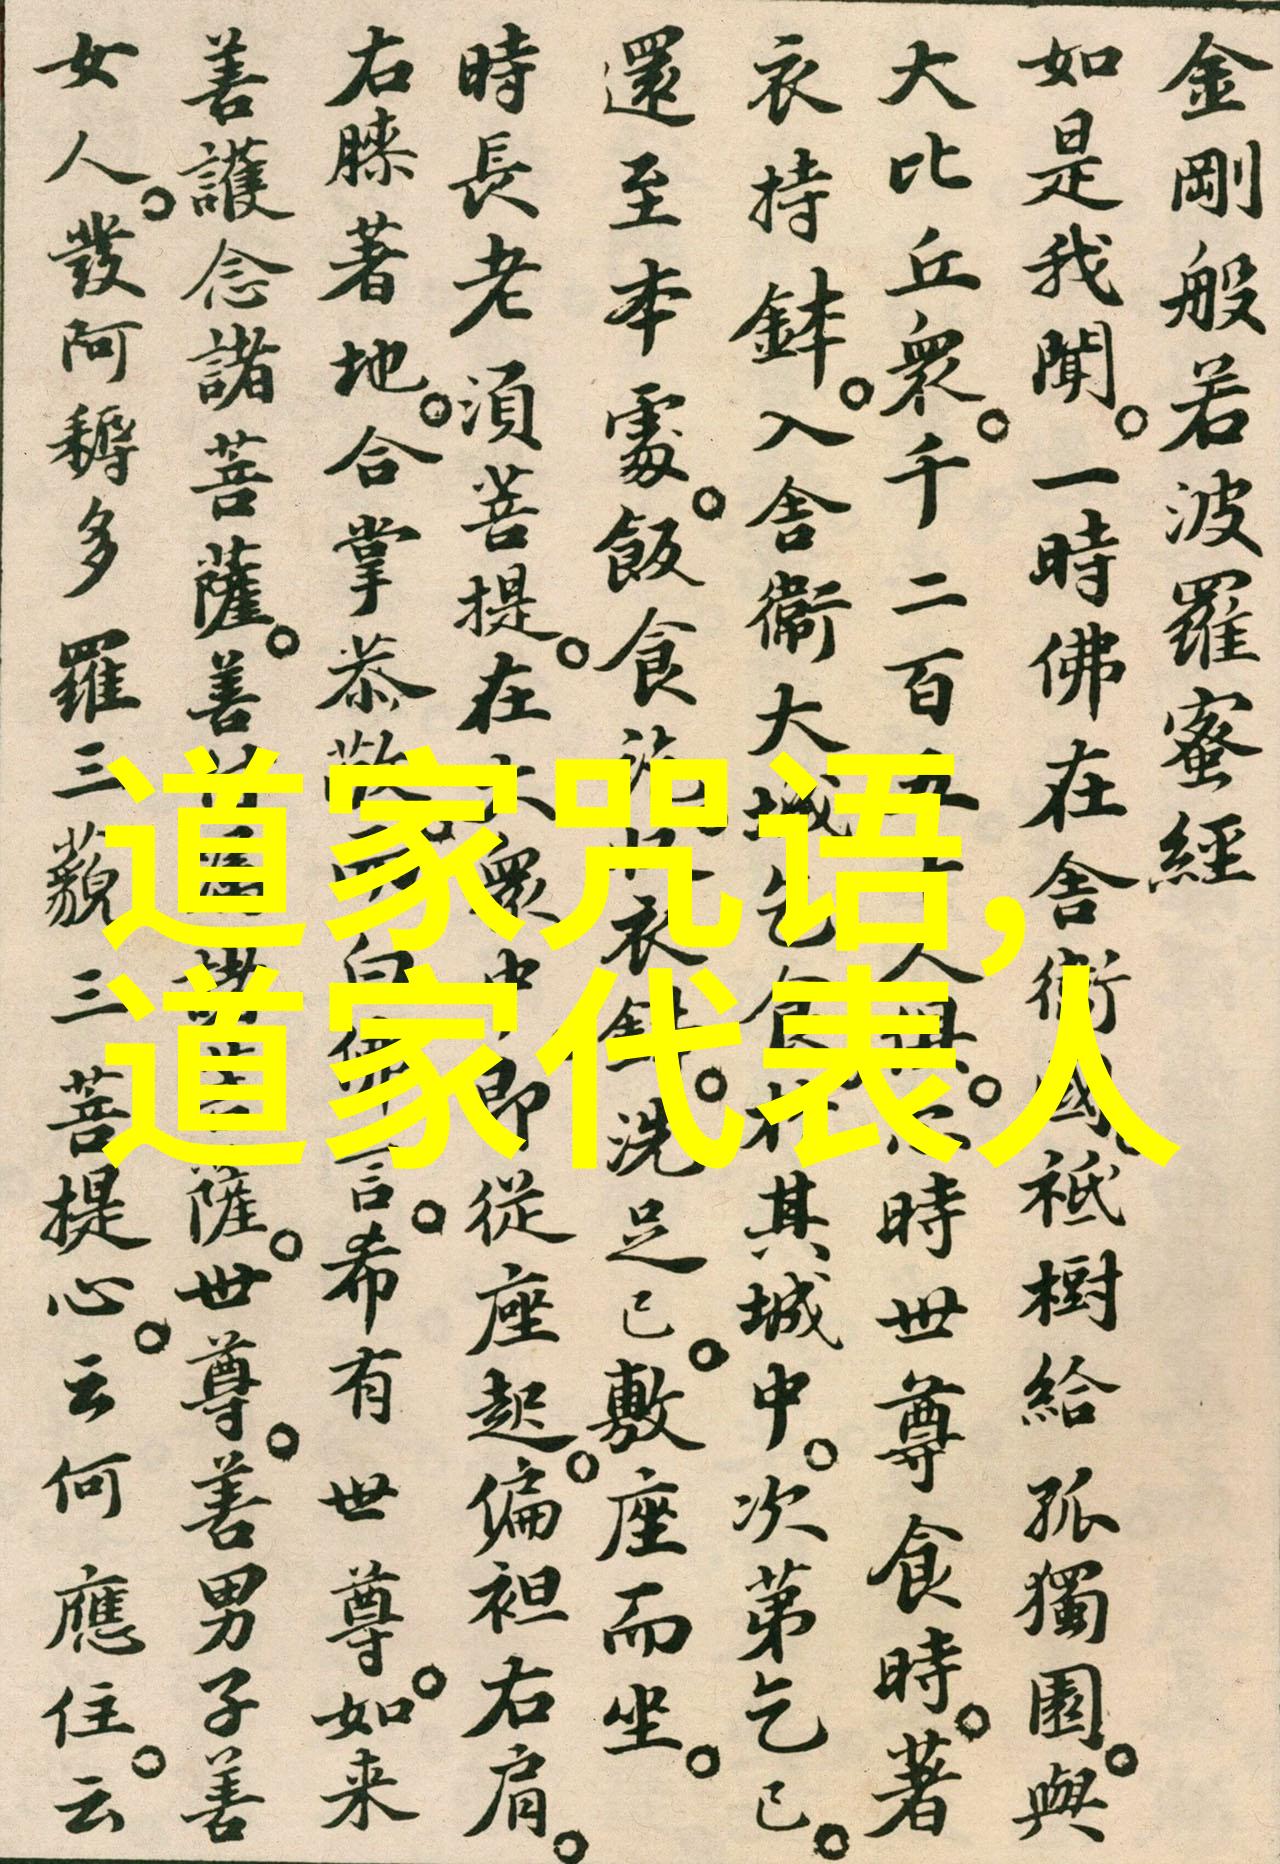 金剛般若波羅蜜經
如是我聞。一時佛在舍衛國。祇樹給孤獨園。與
大比丘衆。千二百五十人俱。時世尊食時。著
衣持鉢。入舍衛大城乞食。於其城中。次第乞已。
還至本處。飯食訖。收衣鉢。洗足已。敷座而坐。
時長老須菩提。在大衆中。即從座起。偏袒右肩。
右膝著地。合掌恭敬。而白佛言。希有世尊。如来
善護念諸菩薩。善付囑諸菩薩。世尊。善男子善
女人。發阿耨多羅三藐三菩提心。云何應住。云
道家咒语,
道家代表人